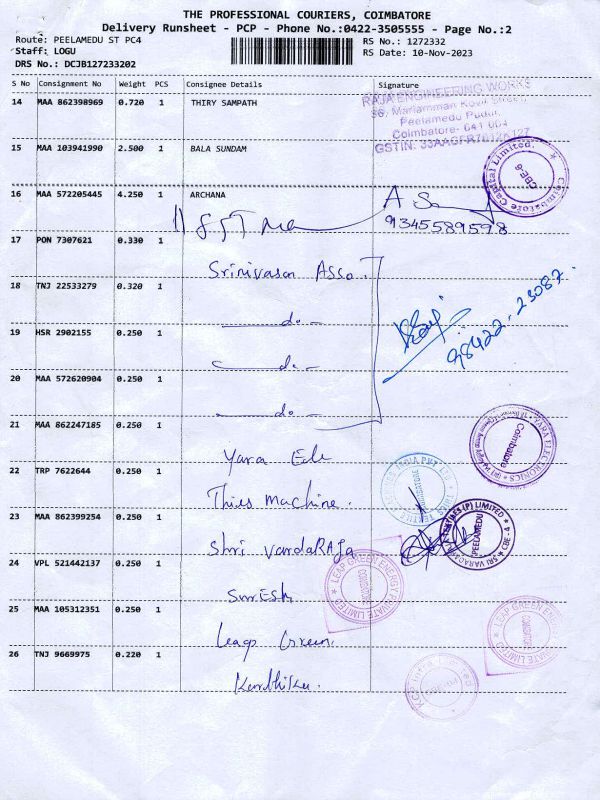 THE PROFESSIONAL COURIERS, COIMBATORE
Delivery Runsheet - PCP - Phone No.:0422-3505555 - Page No.:2
Route: PEELAMEDU ST PC4
RS No.: 1272332
Staff: LOGU
RS Date: 10-Nov-2023
DRS No.: DCJB127233202
S No Consignment No Weight PCS Consignee Details Signature
14 MAA 862398969 0.720 1 THIRY SAMPATH
RAJA ENGINEERING WORKS
36, Mariamman Kovil Street,
Peelamedu Pudur,
Coimbatore- 641 004
GSTIN: 33AAGFR7812K1Z7
15 MAA 103941990 2.500 1 BALA SUNDAM
Coimbatore Capital Limited.
CBE-6
16 MAA 572205445 4.250 1 ARCHANA
9345589598
17 PON 7307621 0.330 1
Srinivasan Asso.
18 TNJ 22533279 0.320 1
do
98422-23087.
19 HSR 2902155 0.250 1
do
20 MAA 572620904 0.250 1
do
21 MAA 862247185 0.250 1
Yara Ele
YARA ELECTRONICS
Coimbatore
22 TRP 7622644 0.250 1
Thies Machine.
23 MAA 862399254 0.250 1
Shri VardaRAJa
SRI VARADARAJA (P) LIMITED
PEELAMEDU
CBE-4
24 VPL 521442137 0.250 1
SurESh
LEAP GREEN ENERGY PRIVATE LIMITED
COIMBATORE
25 MAA 105312351 0.250 1
Leap Green.
LEAP GREEN PRIVATE LIMITED
26 TNJ 9669975 0.220 1
Karthike.